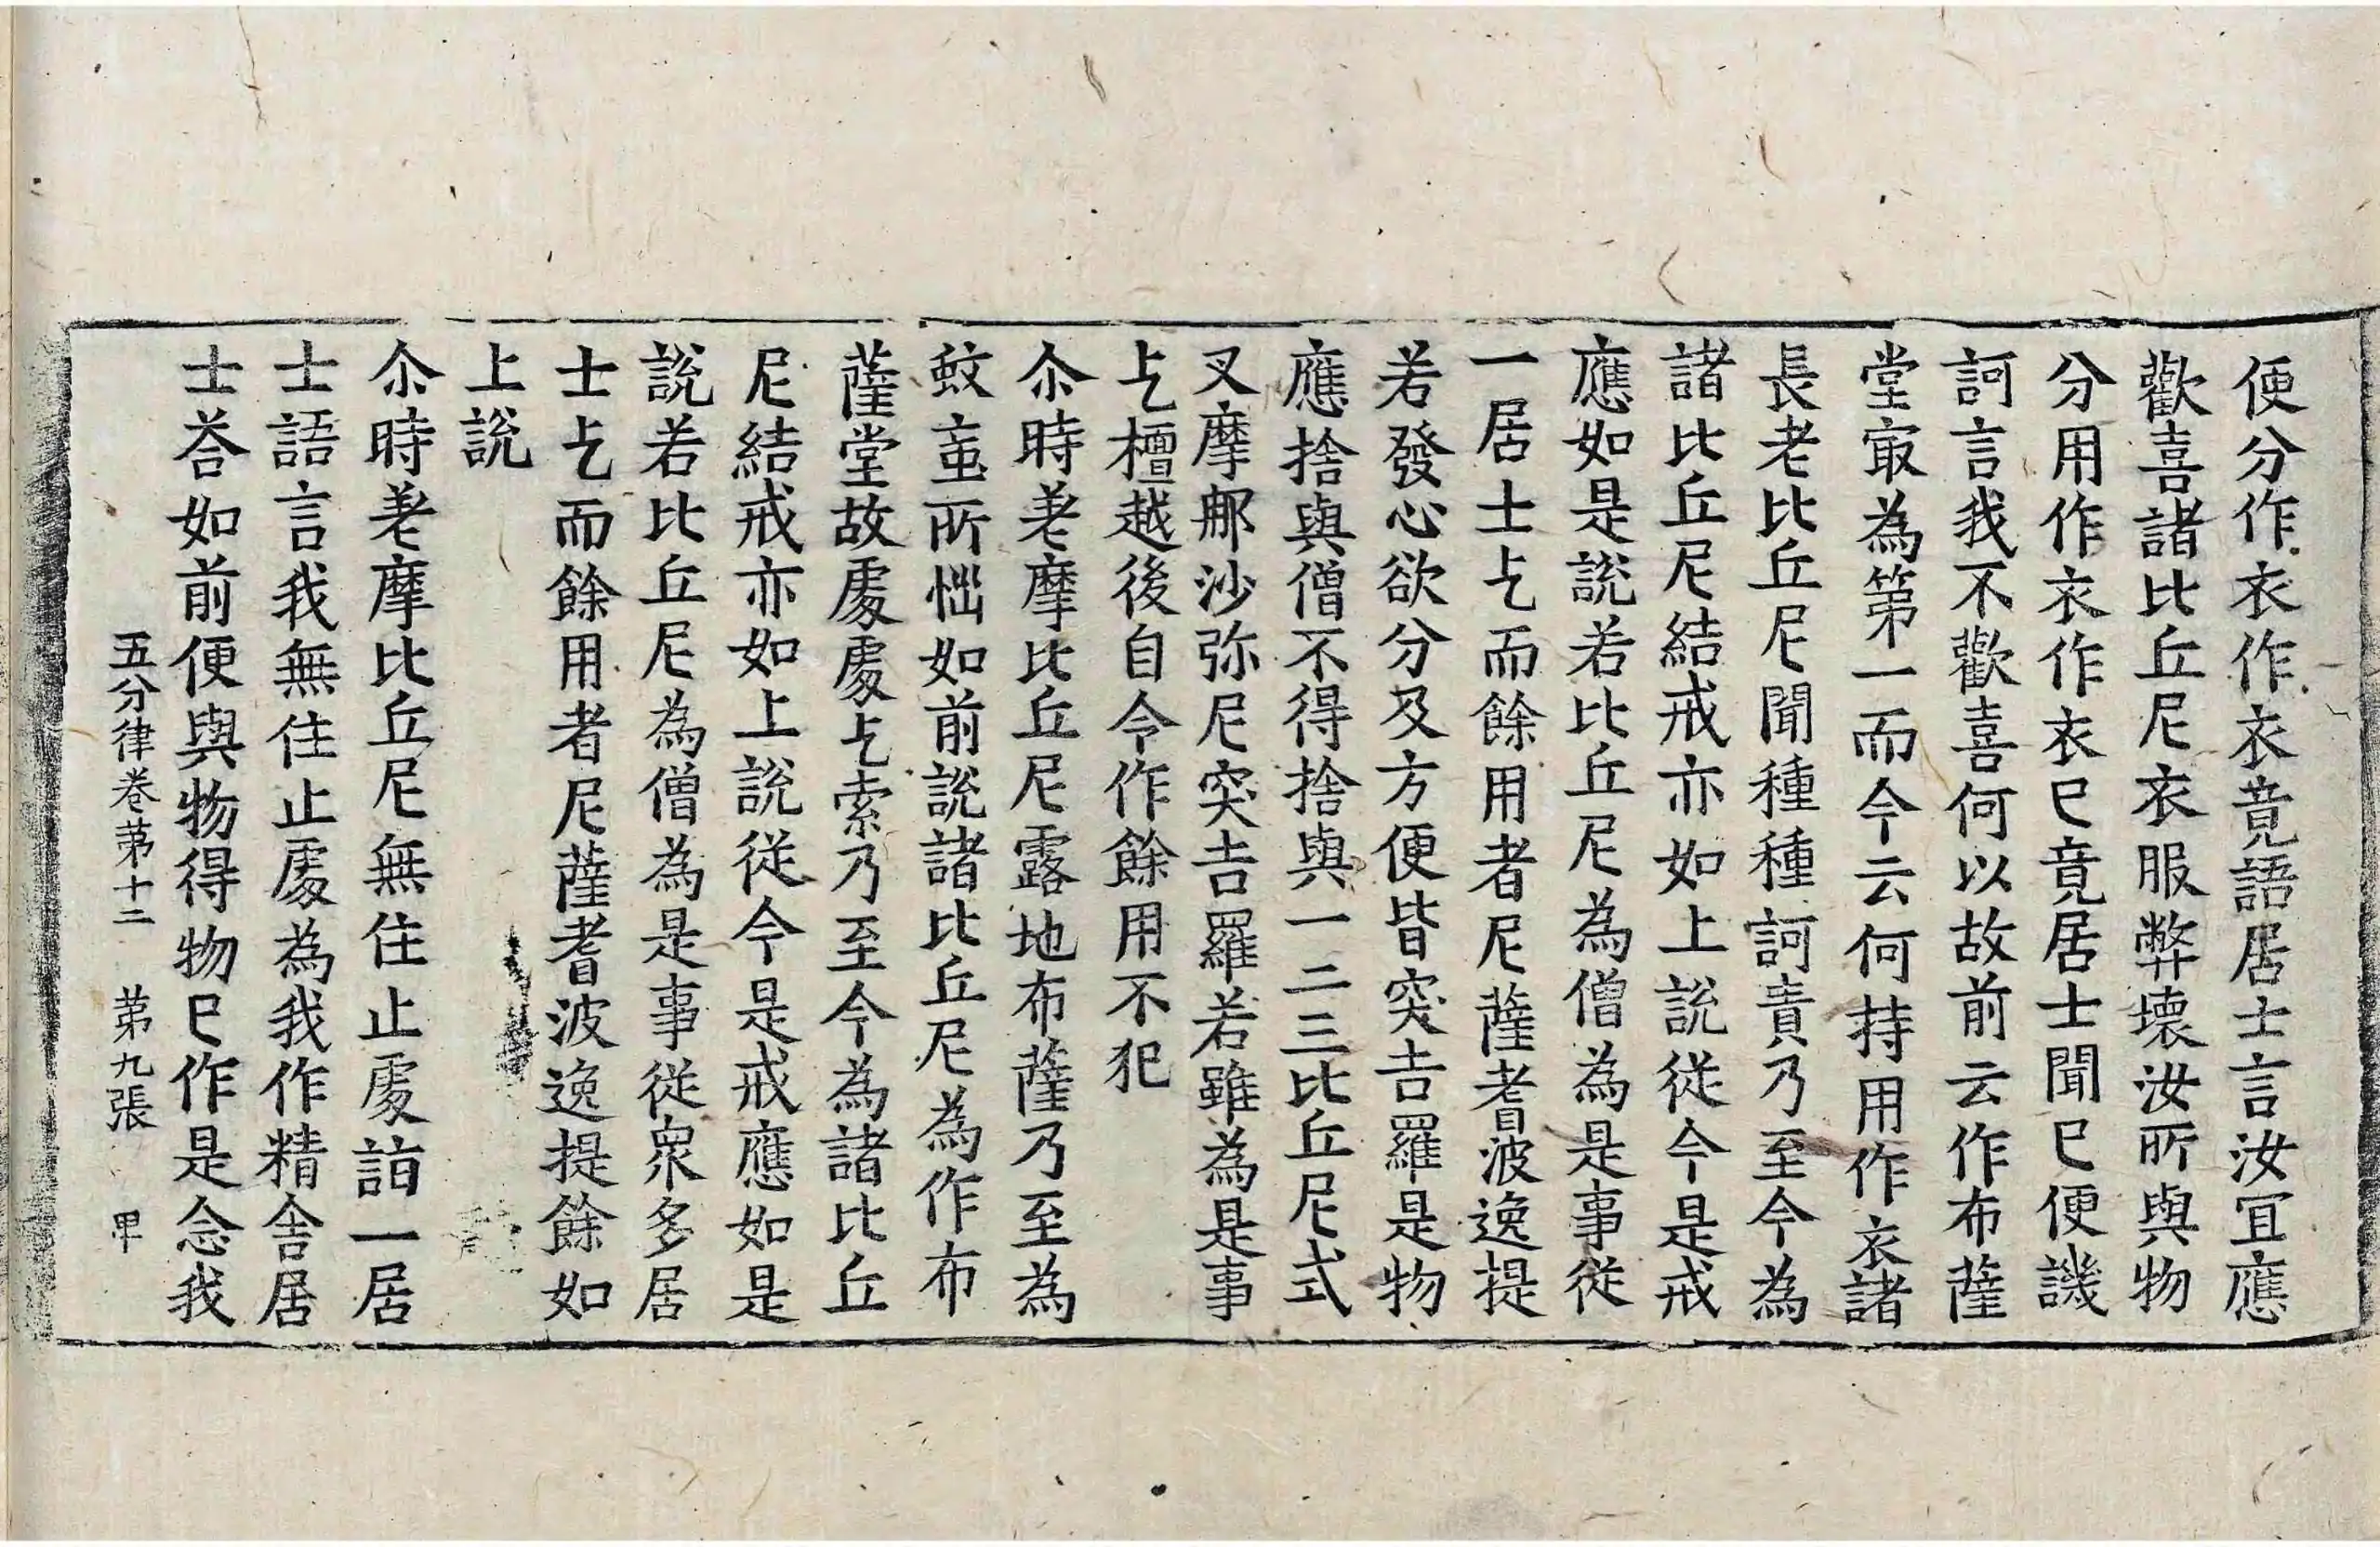 便分作衣作衣竟語居士言汝冝應
歡喜諸比丘尼衣服弊壞汝所與物
分用作衣作衣已竟居士聞已便譏
訶言我不歡喜何以故前云作布薩
堂㝡為第一而今云何持用作衣諸
長老比丘尼聞種種訶責乃至今為
諸比丘尼結戒亦如上說從今是戒
應如是說若比丘尼為僧為是事從
一居士乞而餘用者尼薩耆波逸提
若發心欲分及方便皆突吉羅是物
應捨與僧不得捨與一二三比丘尼式
叉摩那沙弥尼突吉羅若雖為是事
乞檀越後自令作餘用不犯
尒時差摩比丘尼露地布薩乃至為
蚊䖟所惱如前說諸比丘尼為作布
薩堂故處處乞索乃至今為諸比丘
尼結戒亦如上說從今是戒應如是
說若比丘尼為僧為是事從衆多居
士乞而餘用者尼薩耆波逸提餘如
上說
尒時差摩比丘尼無住止處詣一居
士語言我無住止處為我作精舍居
士荅如前便與物得物已作是念我
五分律卷第十二 第九張 甲